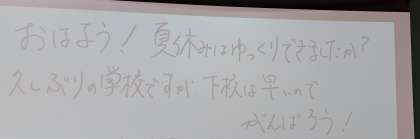 おはよう！ 夏休みはゆっくりできましたか？
久しぶりの学校ですが 下校は早いので
がんばろう！